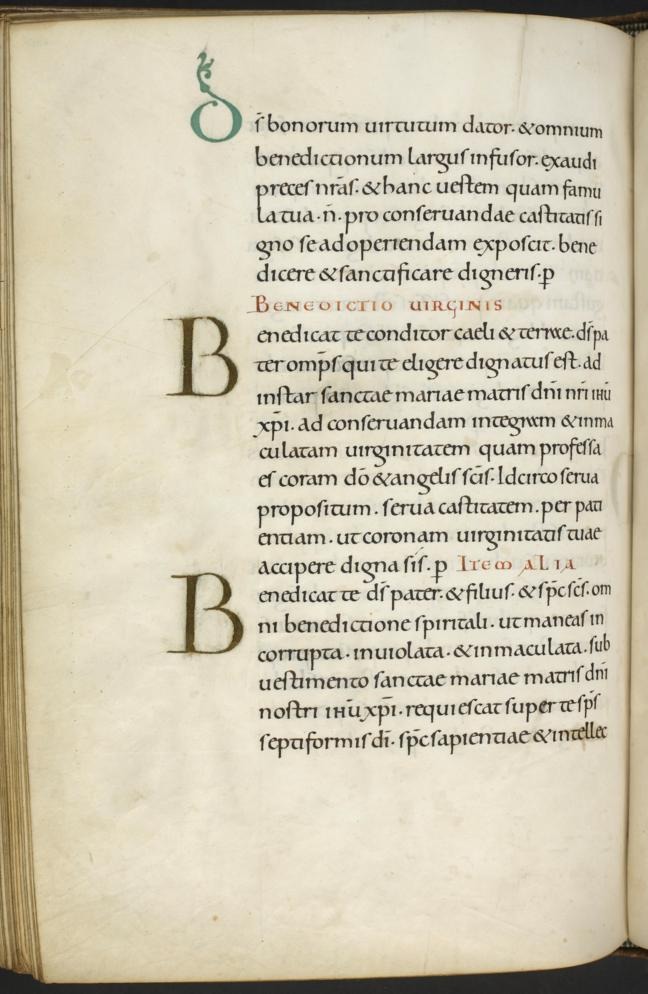 Ds̄ bonorum uirtutum dator. & omnium
benedictionum largus infusor. exaudi
preces nrās. & hanc uestem quam famu
la tua .n̄. pro conseruandae castitatis si
gno se adoperiendam exposcit. bene
dicere & sanctificare digneris. p
BENEDICTIO UIRGINIS
Benedicat te conditor caeli & terrae. ds̄ pa
ter omp̄s qui te eligere dignatus est. ad
instar sanctae mariae matris dn̄i nr̄i ihū
xp̄i. ad conseruandam integram & inma
culatam uirginitatem quam professa
es coram dō & angelis sc̄is. Idcirco serua
propositum. serua castitatem. per pati
entiam. ut coronam uirginitatis tuae
accipere digna sis. p ITEM ALIA
Benedicat te ds̄ pater. & filius. & sp̄c sc̄s. om
ni benedictione spiritali. ut maneas in
corrupta. inuiolata. & inmaculata. sub
uestimento sanctae mariae matris dn̄i
nostri ihū xp̄i. requiescat super te sp̄s
septiformis dī. sp̄c sapientiae & intellec